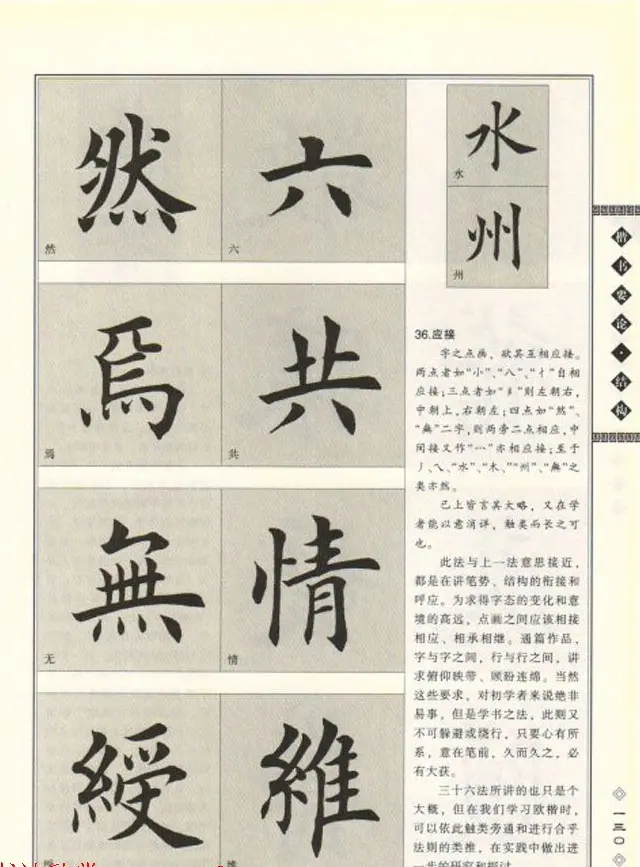 然
然
六
六
水
水
州
州
焉
焉
共
共
無
无
情
情
綬
維
36.应接
字之点画，欲其互相应接。
两点者如“小”、“八”、“忄”自相
应接；三点者如“氵”则左朝右，
中朝上，右朝左；四点如“然”、
“無”二字，则两旁二点相应，中
间接又作“一”亦相应接；至于
丿、乀、“水”、“木”、“州”、“無”之
类亦然。
已上皆言其大略，又在学
者能以意消详，触类而长之可
也。
此法与上一法意思接近，
都是在讲笔势、结构的衔接和
呼应。为求得字态的变化和意
境的高远，点画之间应该相接
相应、相承相继。通篇作品，
字与字之间，行与行之间，讲
求俯仰映带、顾盼连绵。当然
这些要求，对初学者来说绝非
易事，但是学书之法，此则又
不可躲避或绕行，只要心有所
系，意在笔前，久而久之，必
有大获。
三十六法所讲的也只是个
大概，但在我们学习欧楷时，
可以依此触类旁通和进行合乎
法则的类推，在实践中做出进
一步的研究和探讨
楷书要论·结构
一三〇